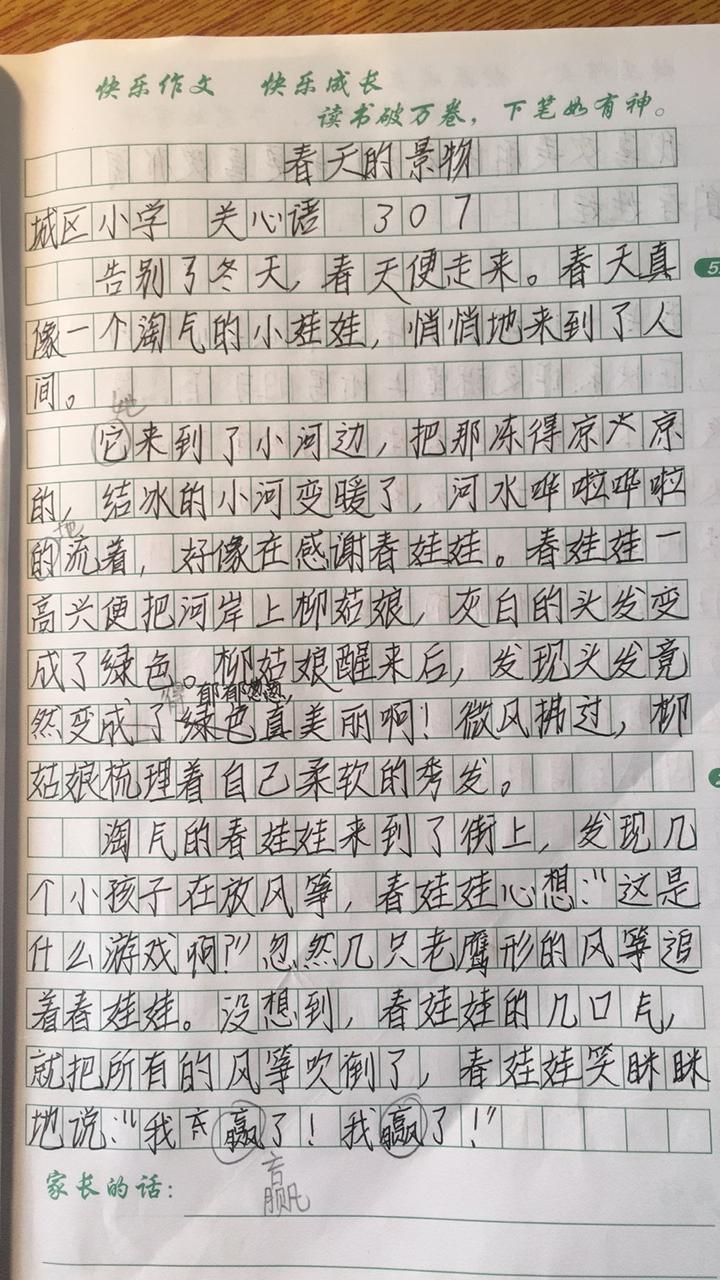 快乐作文 快乐成长
读书破万卷，下笔如有神。
春天的景物
城区小学 关心语 307
告别了冬天，春天便走来。春天真
像一个淘气的小娃娃，悄悄地来到了人
间。
她
它来到了小河边，把那冻得凉冰凉
的，结冰的小河变暖了，河水哗啦哗啦
地
的流着，好像在感谢春娃娃。春娃娃一
高兴便把河岸上柳姑娘，灰白的头发变
成了绿色。柳姑娘醒来后，发现头发竟
得郁郁葱葱，
然变成了绿色真美丽啊！微风拂过，柳
姑娘梳理着自己柔软的秀发。
淘气的春娃娃来到了街上，发现几
个小孩子在放风筝，春娃娃心想：“这是
什么游戏啊？”忽然几只老鹰形的风筝追
着春娃娃。没想到，春娃娃的几口气，
就把所有的风筝吹倒了，春娃娃笑眯眯
地说：“我赢了！我赢了！”
赢
家长的话：